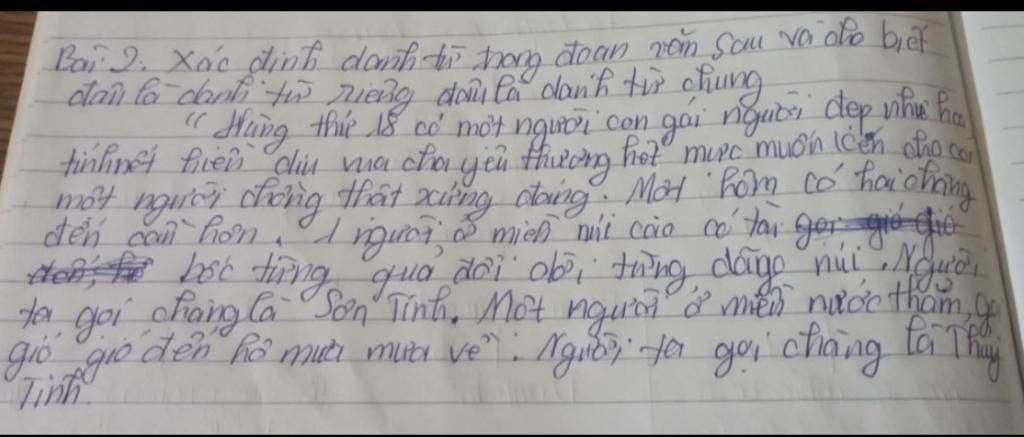 Bài 2. Xác định danh từ trong đoạn văn sau và cho biết
đâu là danh từ riêng đâu là danh từ chung
"Hùng thứ 18 có một người con gái người đẹp như hoa,
tính nết hiền dịu vua cha yêu thương hết mực muốn kén cho con
một người chồng thật xứng đáng. Một hôm có hai chàng
đến cầu hôn. 1 người ở miền núi cao có tài gọi gió gió
đến, bốc từng quả đồi dời từng dãy núi. Người
ta gọi chàng là Sơn Tinh. Một người ở miền nước thẳm, gọi
gió gió đến hô mưa mưa về. Người ta gọi chàng là Thuỷ
Tinh.